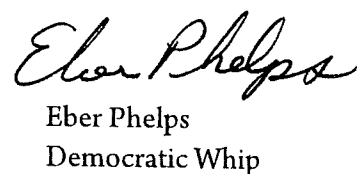 Eber Phelps
Eber Phelps
Democratic Whip